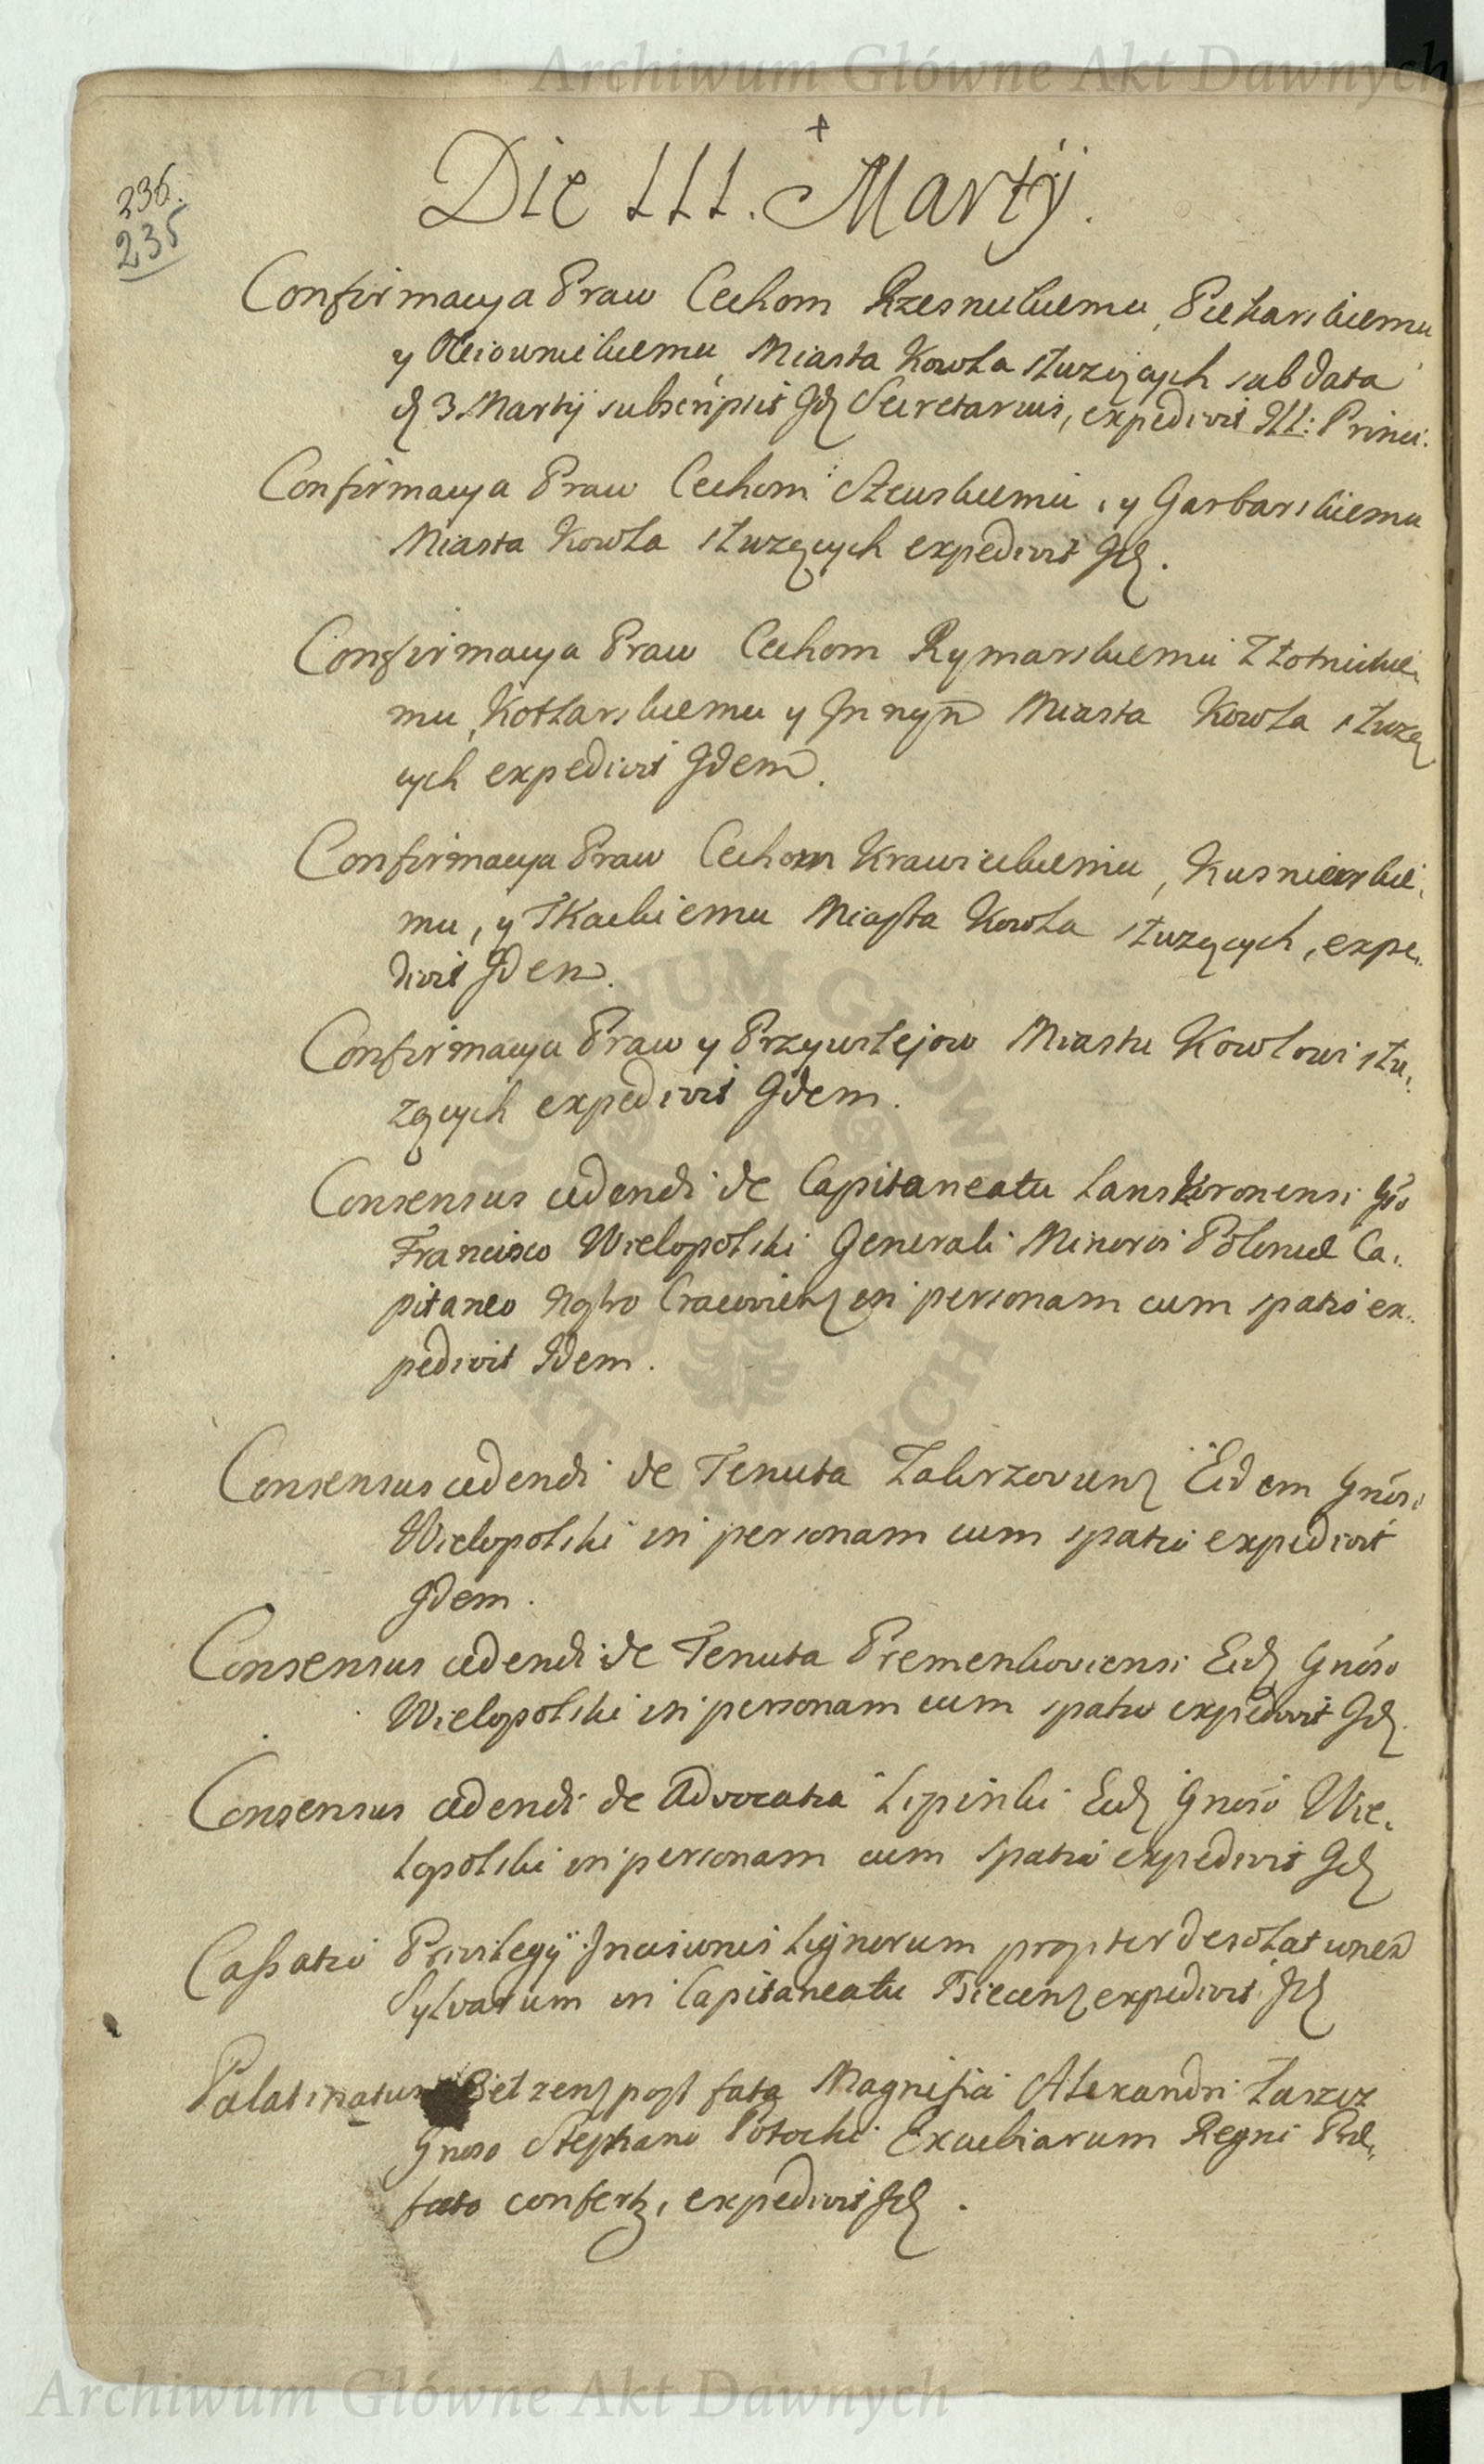 Archiwum Główne Akt Dawnych
+
Die III. Martÿ.
236.
235
Confirmacya Praw Cechom Rzesnickiemu, Piekarskiemu
y Miasta Kowla służących sub data
d 3 Martij subscriptis Jd Secretarius, expedivit Ill: Princi.
Confirmacya Praw Cechom Szewskiemu, y Garbarskiemu
Miasta Kowla służących expedivit Jd.
Confirmacya Praw Cechom Rymarskiemu Złotnickie
mu, Kotlarskiemu y Innym Miasta Kowla służą
cych expedivit Idem.
Confirmacya Praw Cechom Krawieckiemu, Kusnierskie
mu, y Tkackiemu Miasta Kowla służących, expe
divit Idem.
Confirmacya Praw y Przywilejow Miastu Kowlowi słu
zących expedivit Idem.
Consensus cedendi de Capitaneatu Lanskoronensi
Francisco Wielopolski Generali Minoris Poloniæ Ca
pitaneo Cracoviens in personam cum spatio ex
pedivit Idem.
Consensus cedendi de Tenuta Eidem Gnoso
Wielopolski in personam cum spatio expedivit
Idem.
Consensus cedendi de Tenuta Premenkoviensi Eid Gnoso
Wielopolski in personam cum spatio expedivit Id.
Consensus cedendi de Advocatia Lipinki Eid Gnoso Wie
lopolski in personam cum spatio expedivit Id
Cassatio Privilegÿ Incisionis Lignorum propter desolationem
Sylvarum in Capitaneatu Biecens expedivit Id
Palatinatus Belzens post fata Magnifici Alexandri Laszcz
Gnoso Stephano Potocki Excubiarum Regni Præ
fecto confertz, expedivit Id.
ARCHIWUM GŁÓWNE
AKT DAWNYCH
Archiwum Główne Akt Dawnych